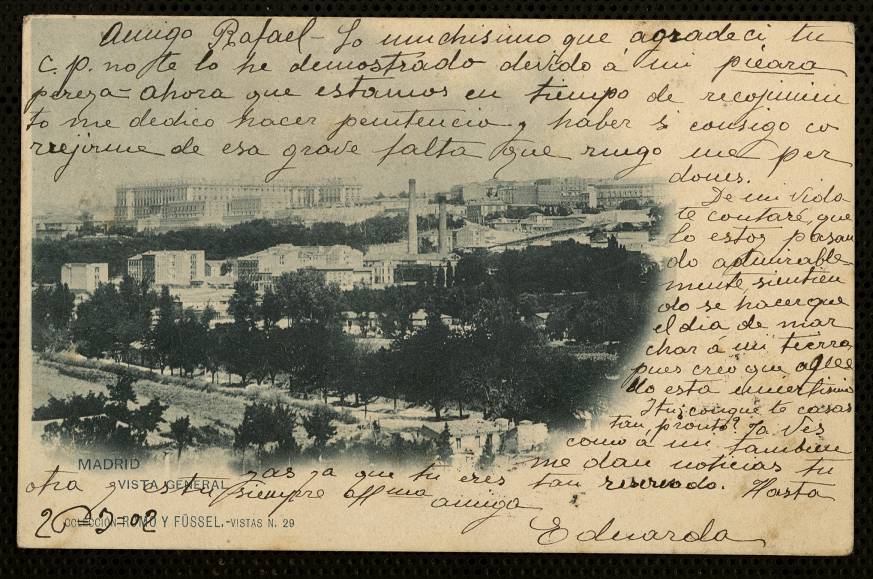 Amigo Rafael - Lo muchisimo que agradeci tu
c. p. no te lo he demostrado devido á mi picara
pereza - ahora que estamos en tiempo de recojimien
to me dedico hacer penitencia y haber si consigo co
rrejirme de esa grave falta que ruego me per
dones.
De mi vida
te contaré, que
lo estoy pasan
do admirable-
mente, sintien
do se hacerque
el dia de mar
char á mi tierra,
pues creo que aque
do está muertisimo
Y tu, ¿conque te casas
tan pronto? Ya Ves
como á mi tambien
me dan noticias tu
yas ya que tu eres tan reservado. Hasta
otra y es tu siempre affma
amiga
Eduarda
MADRID
VISTA GENERAL
2 - 3 - 02
COLECCIÓN ROMO Y FÜSSEL.-VISTAS N. 29